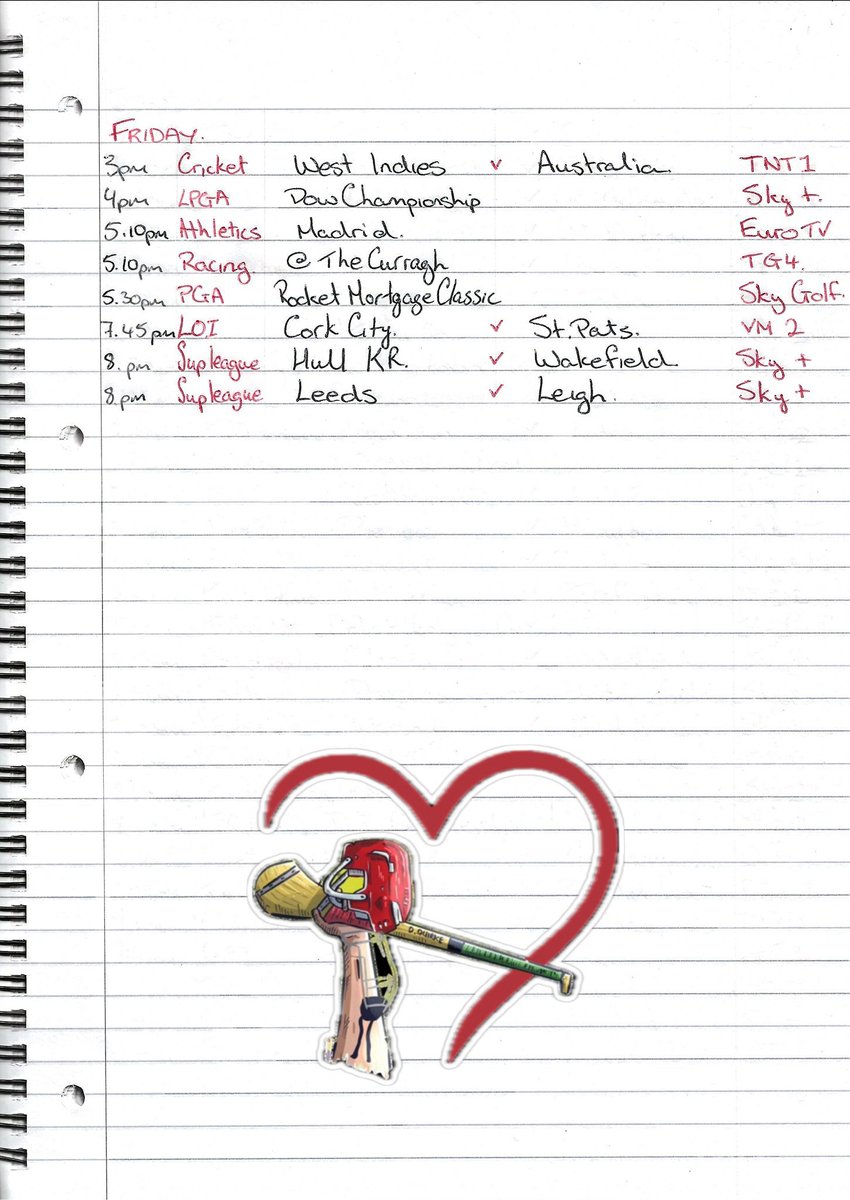 FRIDAY.
3pm Cricket West Indies v Australia. TNT1
4pm LPGA Dow Championship Sky +.
5.10pm Athletics Madrid. Euro TV
5.10pm Racing. @ The Curragh TG4.
5.30pm PGA Rocket Mortgage Classic Sky Golf.
7.45pm L.O.I Cork City. v St. Pats. VM 2
8.pm Supleague Hull KR. v Wakefield. Sky +
8.pm Supleague Leeds v Leigh. Sky +